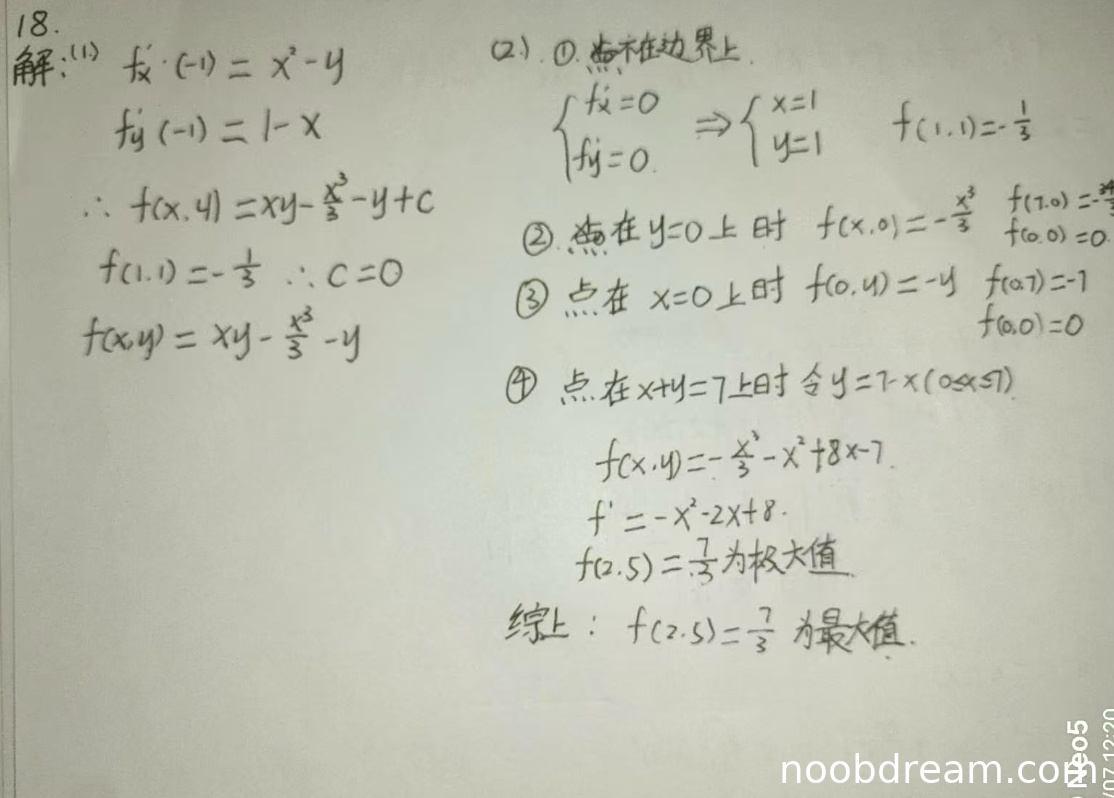 18.
解:(1) fx'·(-1) = x²-y
fy'(-1) = 1-x
∴ f(x,y) = xy - x³/3 - y + C
f(1,1) = -1/3 ∴ C = 0
f(x,y) = xy - x³/3 - y
(2.) ① 点不在边界上.
{ fx'=0 fy'=0. ⇒ { x=1 y=1 f(1,1) = -1/3
② 点在 y=0 上时 f(x,0) = -x³/3 f(7,0) =
f(0,0) = 0
③ 点在 x=0 上时 f(0,y) = -y f(0,7) = -7
f(0,0) = 0
④ 点在 x+y=7上时 令 y=7-x (0≤x≤7)
f(x,y) = -x³/3 - x² + 8x - 7.
f' = -x² - 2x + 8.
f(2.5) = 7/3 为极大值.
综上: f(2.5) = 7/3 为最大值.
noobdream.com
Neo5
/07 12:20